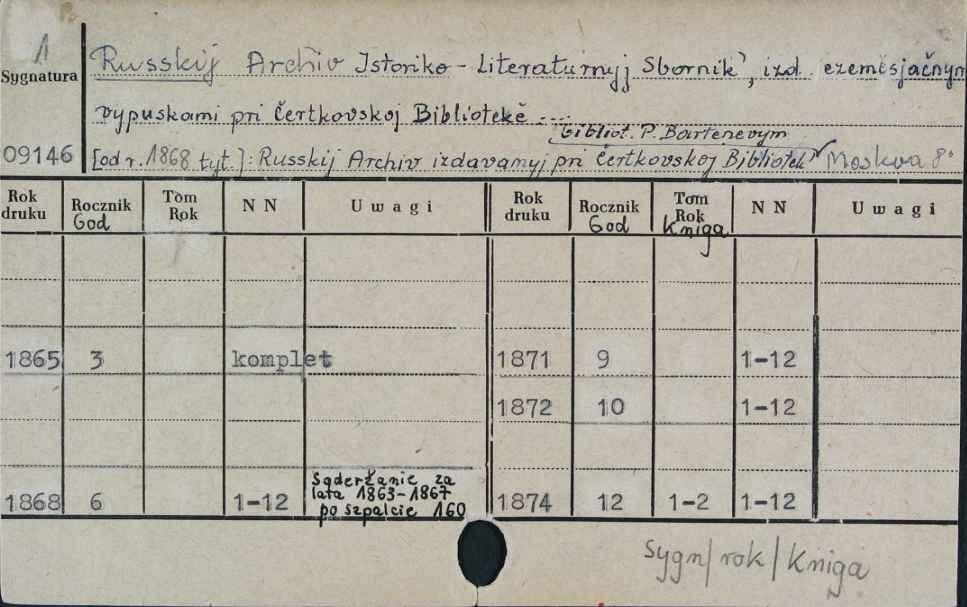 1
Sygnatura
09146
Russkij Archiv Istoriko-Literaturnyj Sbornik", izd. ezeměsjačnym
vypuskami pri čertkovskoj Bibliotekě ...
bibliot. P. Bartenevym
[od r. 1868 tyt.]: Russkij Archiv izdavamyj pri čertkovskoj Bibliotek" Moskva 8°
Rok druku Rocznik God Tom Rok N N Uwagi Rok druku Rocznik God Tom Rok Kniga N N Uwagi
1865 3 komplet 1871 9 1-12
1872 10 1-12
1868 6 1-12 Sąderżanie za lata 1863-1867 po szpalcie 160 1874 12 1-2 1-12
Sygn/rok/Kniga